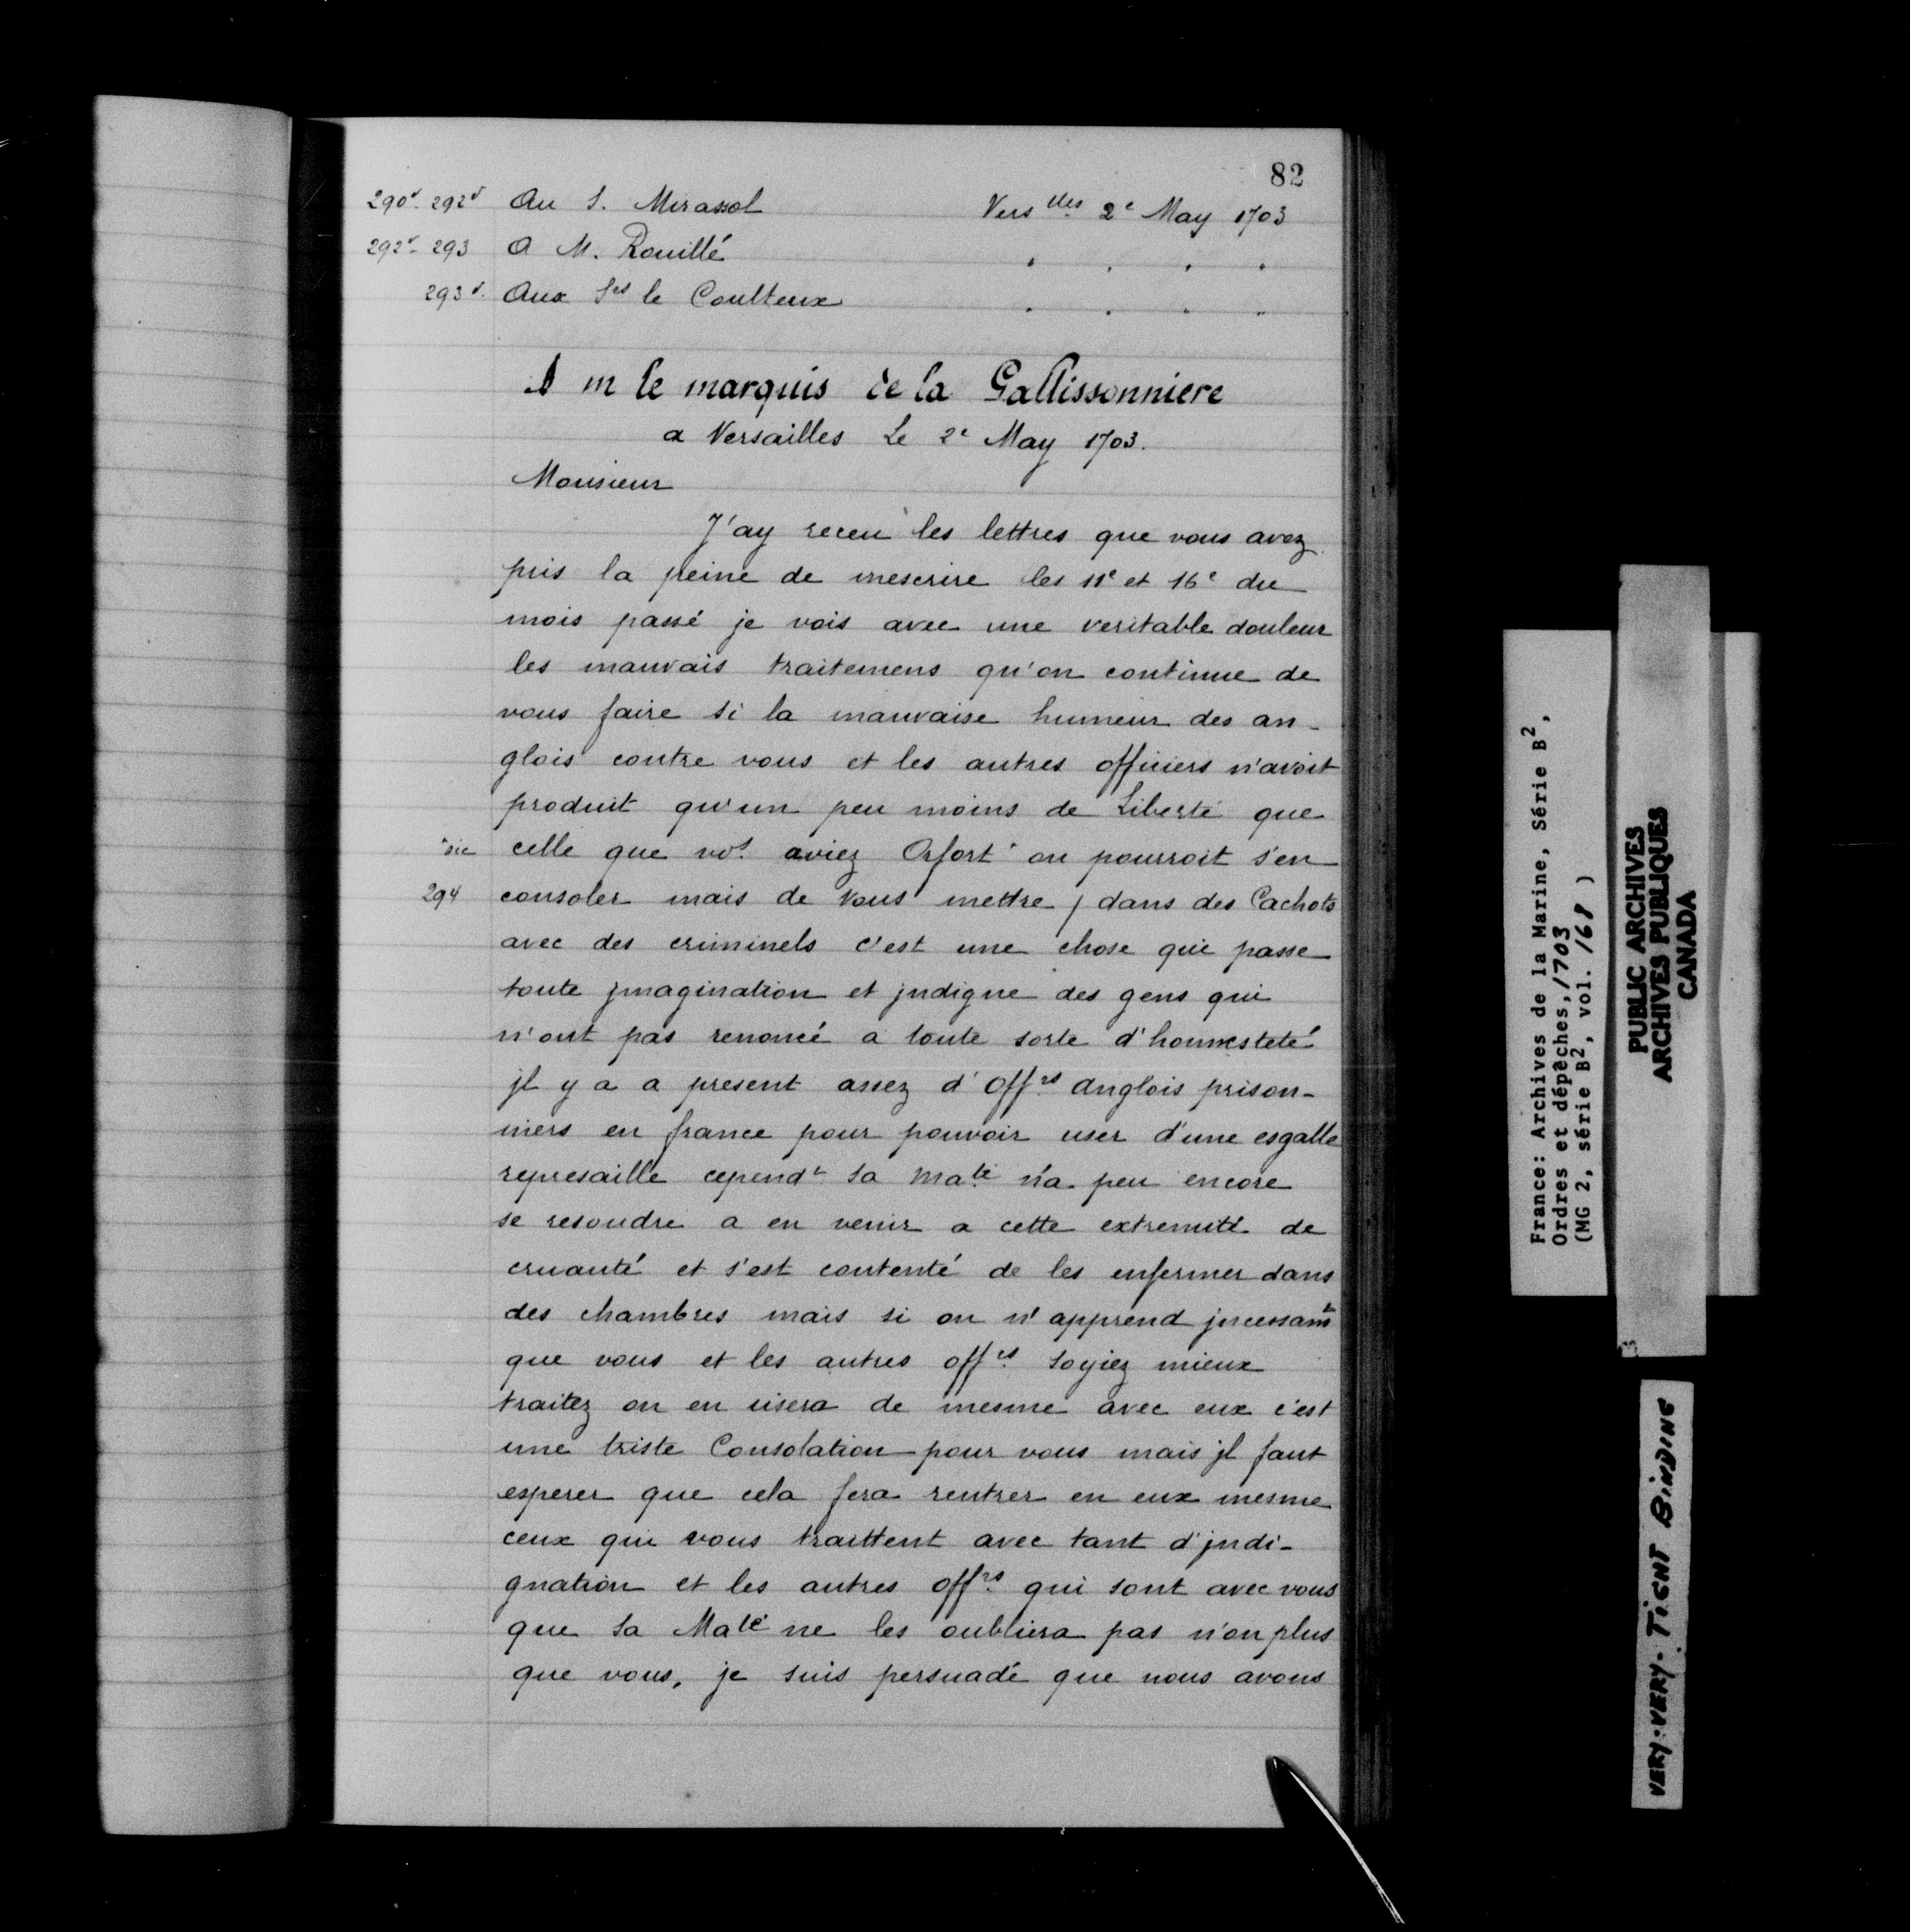 82
290v. 292v Au S. Mirassol Vers lles 2e May 1703
292v - 293 A M. Rouillé " " " "
293v. Aux Srs le Coulteux " " " "
A m le marquis de la Gallissonniere
a Versailles Le 2e May 1703.
Monsieur
J'ay receu les lettres que vous avez
pris la peine de mescrire les 11e et 16e du
mois passé je vois avec une veritable douleur
les mauvais traitemens qu'on continue de
vous faire si la mauvaise humeur des an-
glois contre vous et les autres officiers n'avoit
produit qu'un peu moins de Liberté que
*sic celle que vos. aviez Orfort * on pourroit s'en
294 consoler mais de vous mettre / dans des Cachots
avec des criminels c'est une chose qui passe
toute jmagination et jndigne des gens qui
n'ont pas renoncé a toute sorte d'honnesteté
jl y a a present assez d'offrs anglois prison-
niers en france pour pouvoir user d'une esgalle
represaille cependt sa Maté n'a peu encore
se resoudre a en venir a cette extremité de
cruauté et s'est contenté de les enfermer dans
des chambres mais si on n'apprend jncessamt
que vous et les autres offrs soyiez mieux
traitez on en usera de mesme avec eux c'est
une triste Consolation pour vous mais jl faut
esperer que cela fera rentrer en eux mesme
ceux qui vous traittent avec tant d'jndi-
gnation et les autres offrs qui sont avec vous
que sa Maté ne les oubliera pas n'on plus
que vous, je suis persuadé que nous avons
France: Archives de la Marine, Série B2,
Ordres et dépêches, 1703
(MG 2, série B2, vol. 168 )
PUBLIC ARCHIVES
ARCHIVES PUBLIQUES
CANADA
3
VERY: VERY. TIGHT BINDING